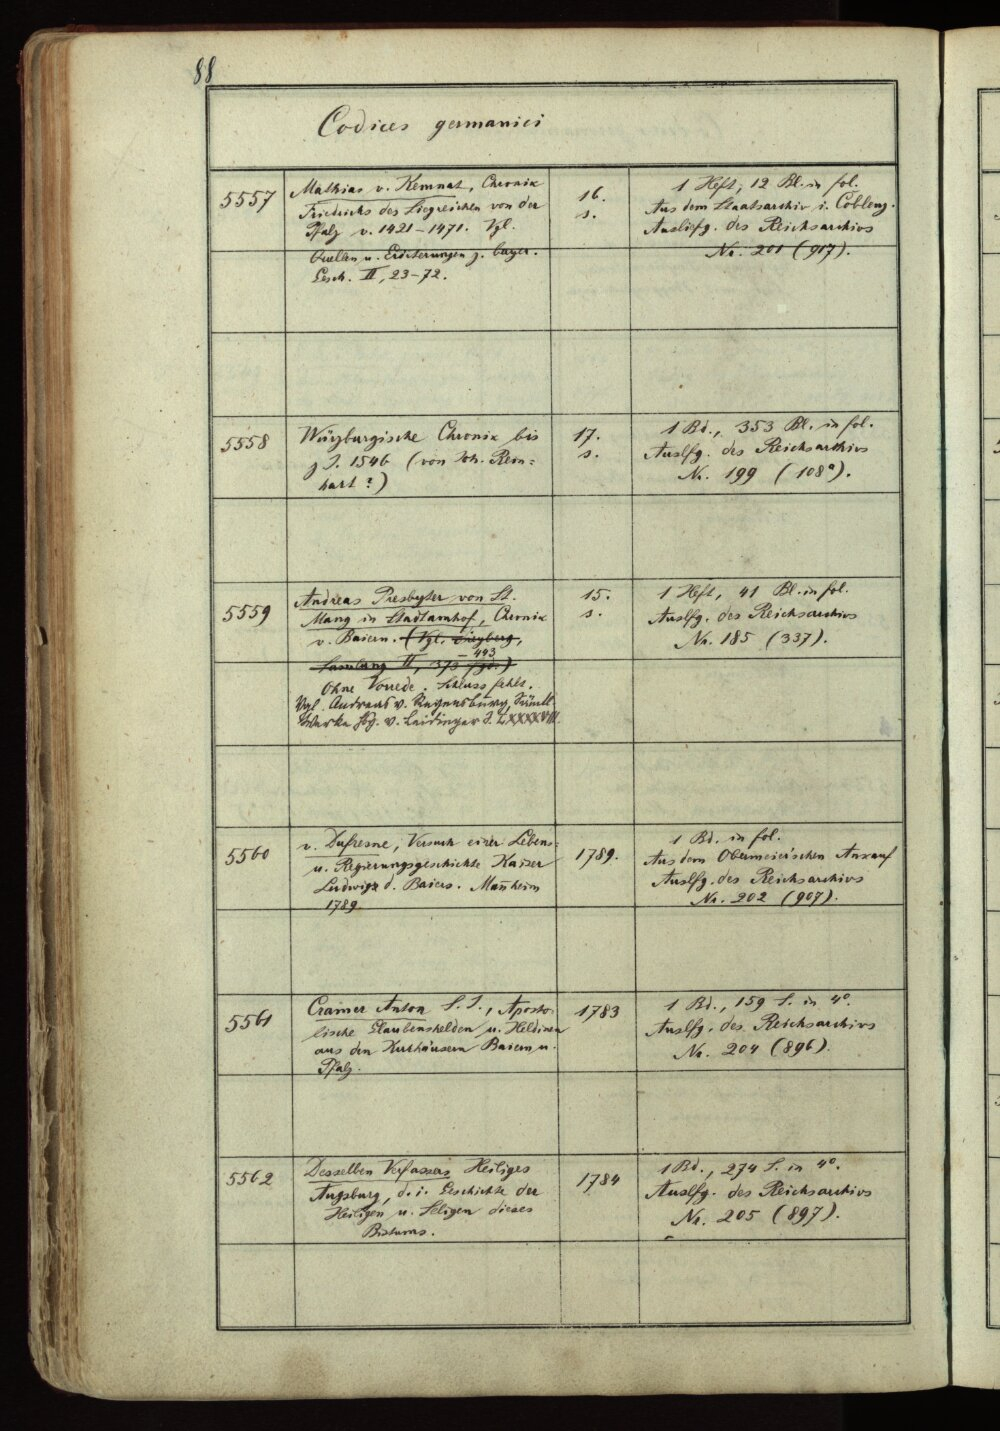 88
Codices germanici
5557
Mathias v. Kemnat, Chronik
Friedrichs des Siegreichen von der
Pfalz v. 1421–1471. Vgl.
Quellen u. Erörterungen z. bayer.
Gesch. II, 23–72.
16.
s.
1 Heft, 12 Bl. in fol.
Aus dem Staatsarchiv i. Coblenz.
Ausliefg. des Reichsarchivs
Nr. 201 (917).
5558
Würzburgische Chronik bis
z J. 1546 (von Joh. Rein-
hart?)
17.
s.
1 Bd., 353 Bl. in fol.
Auslfg. des Reichsarchivs
Nr. 199 (108a).
5559
Andreas Presbyter von St.
Mang in Stadtamhof, Chronik
v. Baiern. (Vgl. Freyberg,
–443
Samlung II, 373 fgd.)
Ohne Vorrede. Schluss fehlt.
Vgl. Andreas v. Regensburg, Sämtl.
Werke hsg. v. Leidinger S. LXXXXVIII.
15.
s.
1 Heft, 41 Bl. in fol.
Auslfg. des Reichsarchivs
Nr. 185 (337).
5560
v. Dufresne, Versuch einer Lebens-
u. Regierungsgeschichte Kaiser
Ludwigs d. Baiers. Mannheim
1789
1789.
1 Bd. in fol.
Aus dem Obermeier'schen Ankauf
Auslfg. des Reichsarchivs
Nr. 202 (907).
5561
Cramer Anton S. J., Aposto-
lische Glaubenshelden u. Heldinen
aus den Kurhäusern Baiern u.
Pfalz.
1783
1 Bd., 159 S. in 4o.
Auslfg. des Reichsarchivs
Nr. 204 (896).
5562
Desselben Verfassers Heiliges
Augsburg, d. i. Geschichte der
Heiligen u. Seligen dieses
Bistums.
1784
1 Bd., 274 S. in 4o.
Auslfg. des Reichsarchivs
Nr. 205 (897).